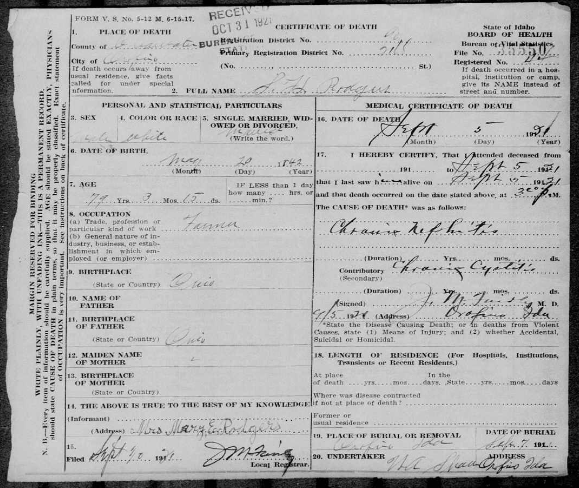 FORM V. S. No. 5-12 M. 6-15-17.
RECEIVED
OCT 31 1921
CERTIFICATE OF DEATH
State of Idaho
BOARD OF HEALTH
Bureau of Vital Statistics.
1. PLACE OF DEATH
County of
City of
Registration District No.
Primary Registration District No.
File No.
Registered No.
(No. St.)
If death occurs away from usual residence, give facts called for under special information.
If death occurred in a hospital, institution or camp, give its NAME instead of street and number.
2. FULL NAME Rodgers
PERSONAL AND STATISTICAL PARTICULARS
3. SEX
4. COLOR OR RACE
5. SINGLE, MARRIED, WIDOWED OR DIVORCED.
(Write the word.)
male white
6. DATE OF BIRTH.
May 20 1842
(Month) (Day) (Year)
7. AGE
79 Yrs. 3 Mos. 15 ds.
IF LESS than 1 day how many hrs. or min.?
8. OCCUPATION
(a) Trade, profession or particular kind of work
(b) General nature of industry, business, or establishment in which employed (or employer)
Farmer
9. BIRTHPLACE
(State or Country) Ohio
10. NAME OF FATHER
11. BIRTHPLACE OF FATHER
(State or Country) Ohio
12. MAIDEN NAME OF MOTHER
13. BIRTHPLACE OF MOTHER
(State or Country)
14. THE ABOVE IS TRUE TO THE BEST OF MY KNOWLEDGE
(Informant) Mrs. Mary E. Rodgers
(Address)
15.
Filed Sept 191
Local Registrar.
MEDICAL CERTIFICATE OF DEATH
16. DATE OF DEATH
Sept 5 1921
(Month) (Day) (Year)
17. I HEREBY CERTIFY, That I attended deceased from
191 to Sept 5 1921
that I last saw h alive on Sept 5 1921
and that death occurred on the date stated above, at M.
The CAUSE OF DEATH* was as follows:
Chronic Nephritis
(Duration) Yrs. mos. ds.
Contributory Chronic Cystitis
(Secondary)
(Duration) Yrs. mos. ds.
(Signed) J. M. M. D.
(Address) Orofino Ida
*State the Disease Causing Death; or in deaths from Violent Causes, state (1) Means of Injury; and (2) whether Accidental, Suicidal or Homicidal.
18. LENGTH OF RESIDENCE (For Hospitals, Institutions, Transients or Recent Residents.)
At place of death yrs. mos. days. In the State yrs. mos. days
Where was disease contracted if not at place of death?
Former or usual residence
19. PLACE OF BURIAL OR REMOVAL
DATE OF BURIAL
Orofino Ida Sept. 7, 191
20. UNDERTAKER
ADDRESS
Orofino Ida
MARGIN RESERVED FOR BINDING
WRITE PLAINLY, WITH UNFADING INK—THIS IS A PERMANENT RECORD.
N. B.—Every item of information should be carefully supplied. AGE should be stated EXACTLY. PHYSICIANS should state CAUSE OF DEATH in plain terms, so that it may be properly classified. Exact statement of OCCUPATION is very important. See instructions on back of certificate.